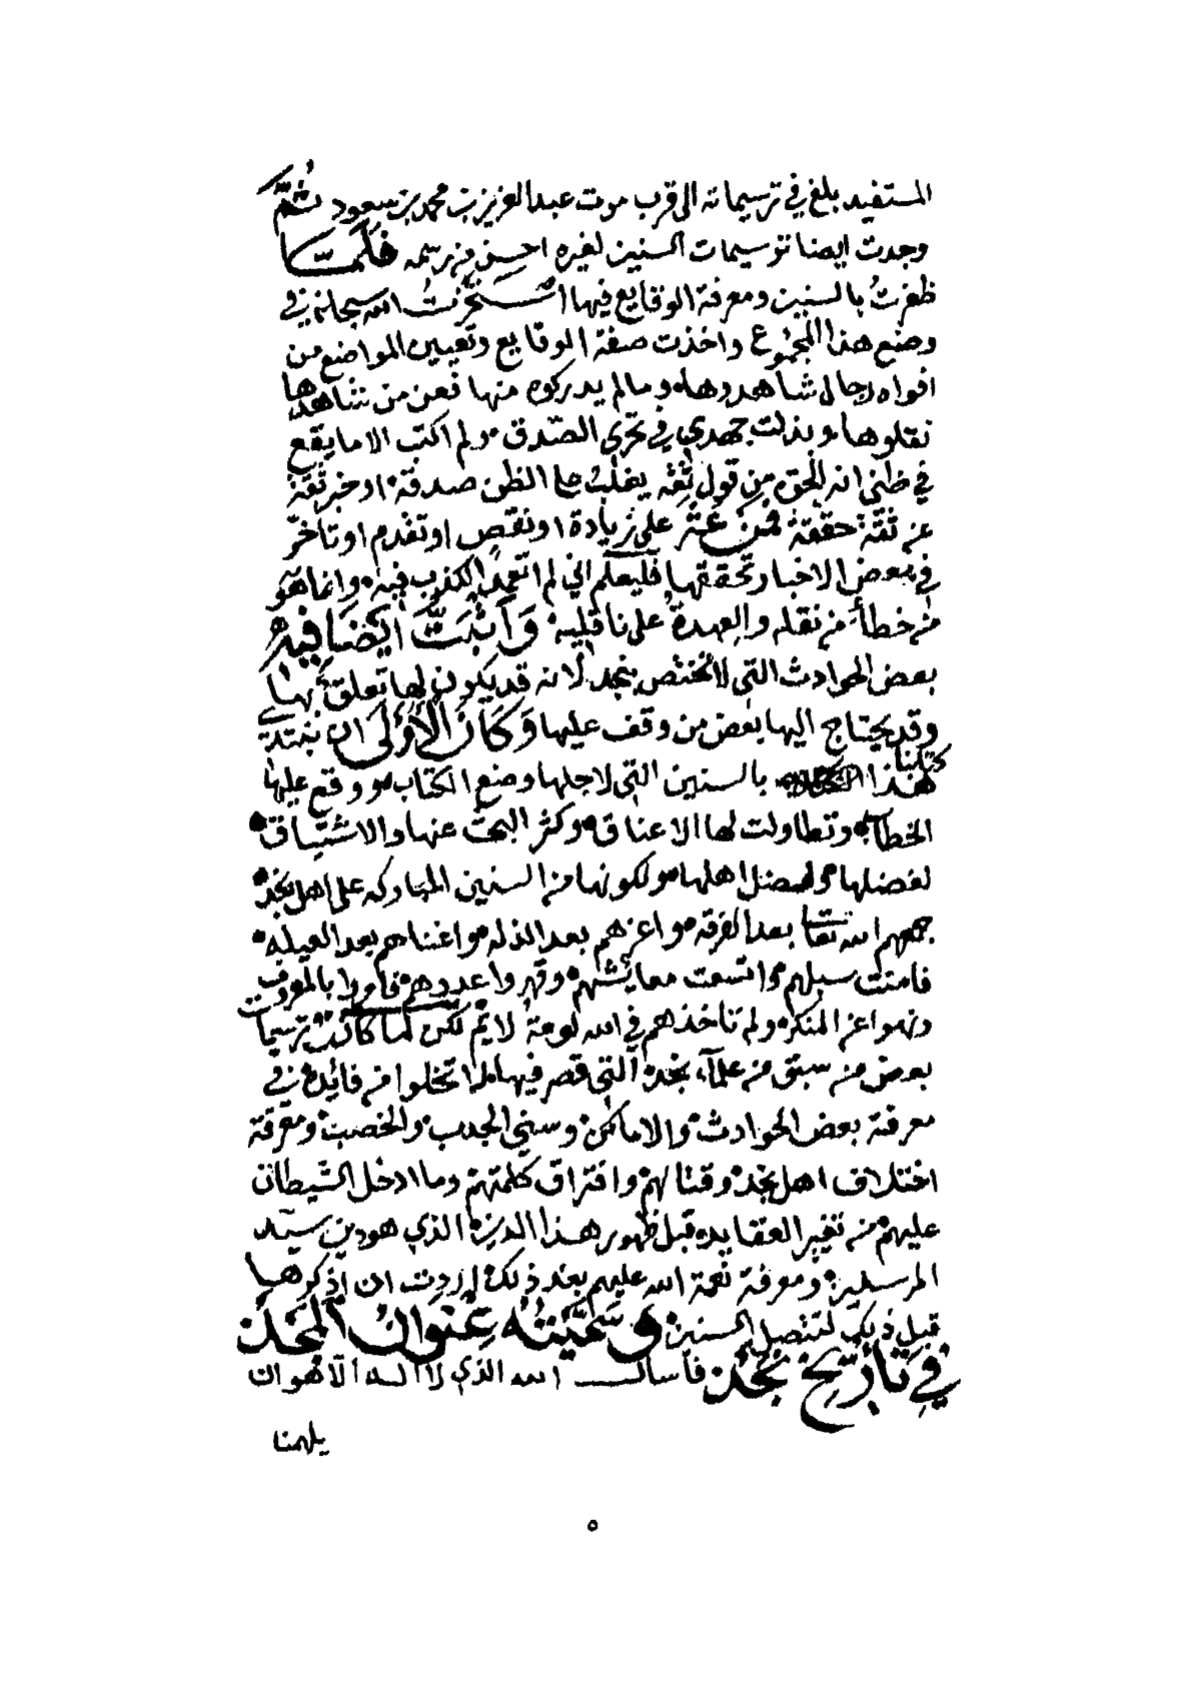 المستفيد بلغ في ترسيماته الى قرب موت عبدالعزيز بن محمد بن سعود ثُمَّ
وجدت ايضا ترسيمات السنين لغيره احسن من ترسمه فلمّا
ظفرتُ بالسنين ومعرفة الوقايع فيها استخرتُ الله سبحانه في
وضع هذا المجموع واخذت صفة الوقايع وتعيين المواضع من
افواه رجال شاهدوها، وما لم يدركوه منها فعن من شاهدها
نقلوها، وبذلت جهدي في تحرّي الصّدق، ولم اكتب الا ما يقع
في ظني انه الحق، من قول ثِقة يغلب على الظن صدقه، او خبر ثقة
عن ثقة حققه فمن عثر على زيادة او نقص او تقدم او تاخّر
في بعض الاخبار تحققها فليعلم اني لم اتعمّد الكذب فيه، وانما هو
من خطأ من نقله والعهدة على ناقليه، وَأثبتّ ايضا فيه
بعض الحوادث التي لا تختص بنجد، لانه قد يكون لها تعلق بها
وقد يحتاج اليها بعض من وقف عليها وَكَانَ الأَوْلَى ان نبتدي
كتابنا
هذا بالسنين التي لاجلها وضع الكتاب، ووقع عليها
الخطاب، وتطاولت لها الاعناق، وكثر البحث عنها والاشتياق،
لفضلها، ولفضل اهلها، ولكونها من السنين المباركه على اهل نجد،
جمعهم الله تعالى بعد الفرقه، واعزهم بعد الذله، واغناهم بعد العيله،
فامنت سبلهم، واتسعت معائشهم، وقهروا عدوهم، فامروا بالمعروف
ونهوا عن المنكر، ولم تاخذهم في الله لومة لائم لكن لما كانت ترسيمات
بعض من سبق من علمآء نجد، التي قصر فيها، لا تخلوا من فائدة، في
معرفة بعض الحوادث، والاماكن، وسني الجدب، والخصب، ومعرفة
اختلاف اهل نجد، وقتالهم، وافتراق كلمتهم، وما ادخل الشيطان
عليهم، من تغيير العقايد، قبل ظهور هذا الدين، الذي هو دين سيّد
المرسلين، ومعرفة نعمة الله عليهم بعد ذلك، اردت ان اذكرها
قبل ذلك لتتصل السنين، وَسَمَّيْتُه عِنْوَانُ اَلْمَجْد،
فِي تَأْرِيْخ نَجْد، فأسال الله الذي لا اله الا هو ان
يلهمنا
٥